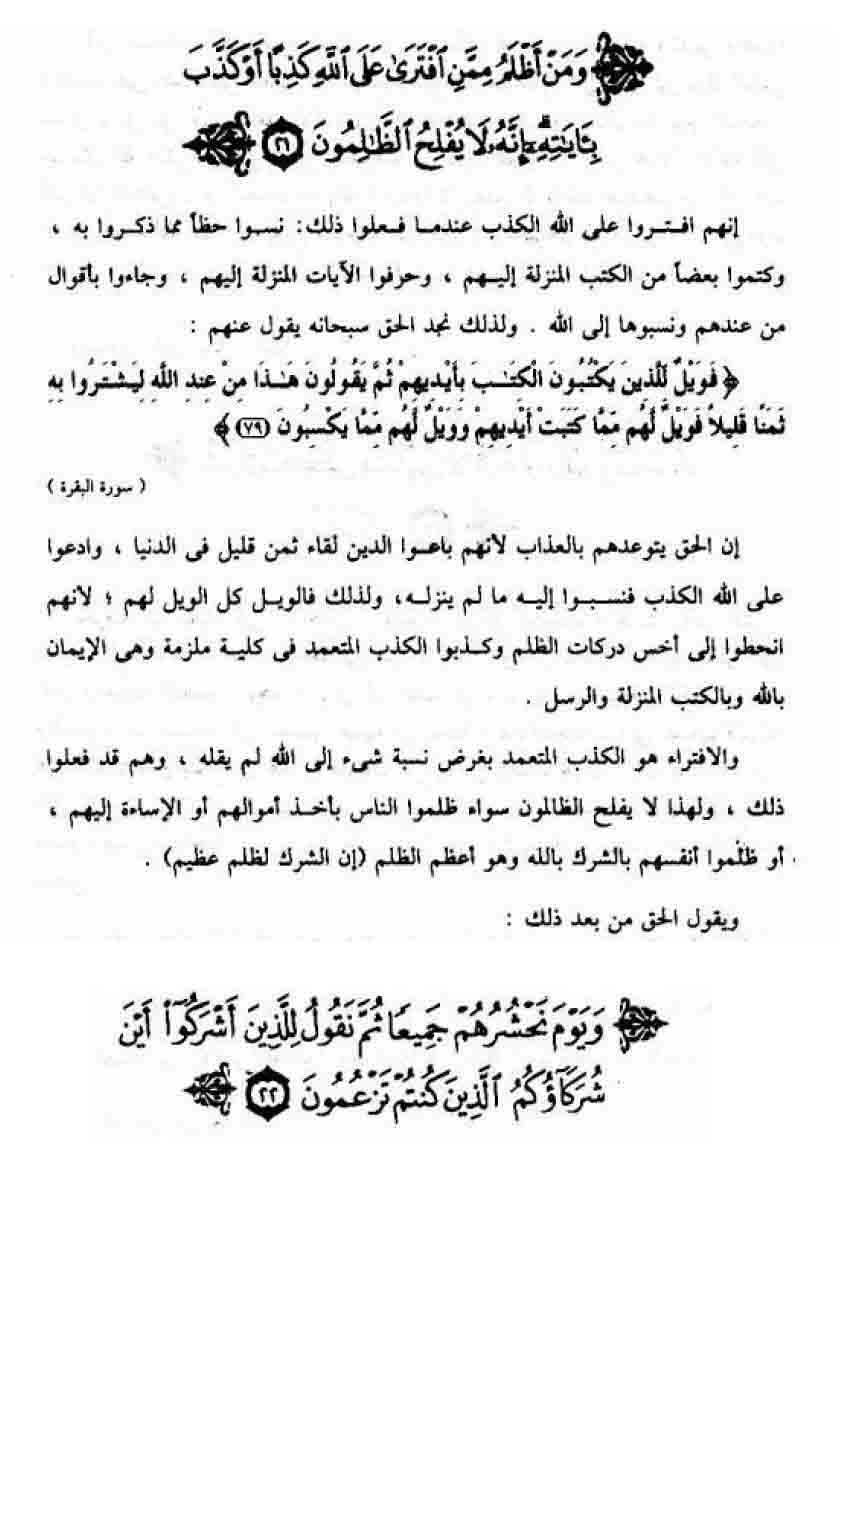 وَمَنْ أَظْلَمُ مِمَّنِ ٱفْتَرَىٰ عَلَى ٱللَّهِ كَذِبًا أَوْ كَذَّبَ
بِـَٔايَـٰتِهِۦٓ ۗ إِنَّهُۥ لَا يُفْلِحُ ٱلظَّـٰلِمُونَ ٢١
إنهم افتـروا على الله الكذب عندما فعلوا ذلك: نسوا حظاً مما ذكروا به ،
وكتموا بعضاً من الكتب المنزلة إليهم ، وحرفوا الآيات المنزلة إليهم ، وجاءوا بأقوال
من عندهم ونسبوها إلى الله . ولذلك نجد الحق سبحانه يقول عنهم :
﴿ فَوَيْلٌ لِّلَّذِينَ يَكْتُبُونَ الْكِتَـٰبَ بِأَيْدِيهِمْ ثُمَّ يَقُولُونَ هَـٰذَا مِنْ عِندِ اللَّهِ لِيَشْتَرُوا بِهِ
ثَمَنًا قَلِيلاً فَوَيْلٌ لَّهُم مِّمَّا كَتَبَتْ أَيْدِيهِمْ وَوَيْلٌ لَّهُم مِّمَّا يَكْسِبُونَ (٧٩) ﴾
( سورة البقرة )
إن الحق يتوعدهم بالعذاب لأنهم باعوا الدين لقاء ثمن قليل فى الدنيا ، وادعوا
على الله الكذب فنسبوا إليه ما لم ينزله، ولذلك فالويل كل الويل لهم ؛ لأنهم
انحطوا إلى أخس دركات الظلم وكذبوا الكذب المتعمد فى كلية ملزمة وهى الإيمان
بالله وبالكتب المنزلة والرسل .
والافتراء هو الكذب المتعمد بغرض نسبة شىء إلى الله لم يقله ، وهم قد فعلوا
ذلك ، ولهذا لا يفلح الظالمون سواء ظلموا الناس بأخذ أموالهم أو الإساءة إليهم ،
أو ظلموا أنفسهم بالشرك بالله وهو أعظم الظلم (إن الشرك لظلم عظيم) .
ويقول الحق من بعد ذلك :
وَيَوْمَ نَحْشُرُهُمْ جَمِيعًا ثُمَّ نَقُولُ لِلَّذِينَ أَشْرَكُوٓا۟ أَيْنَ
شُرَكَآؤُكُمُ ٱلَّذِينَ كُنتُمْ تَزْعُمُونَ ٢٢